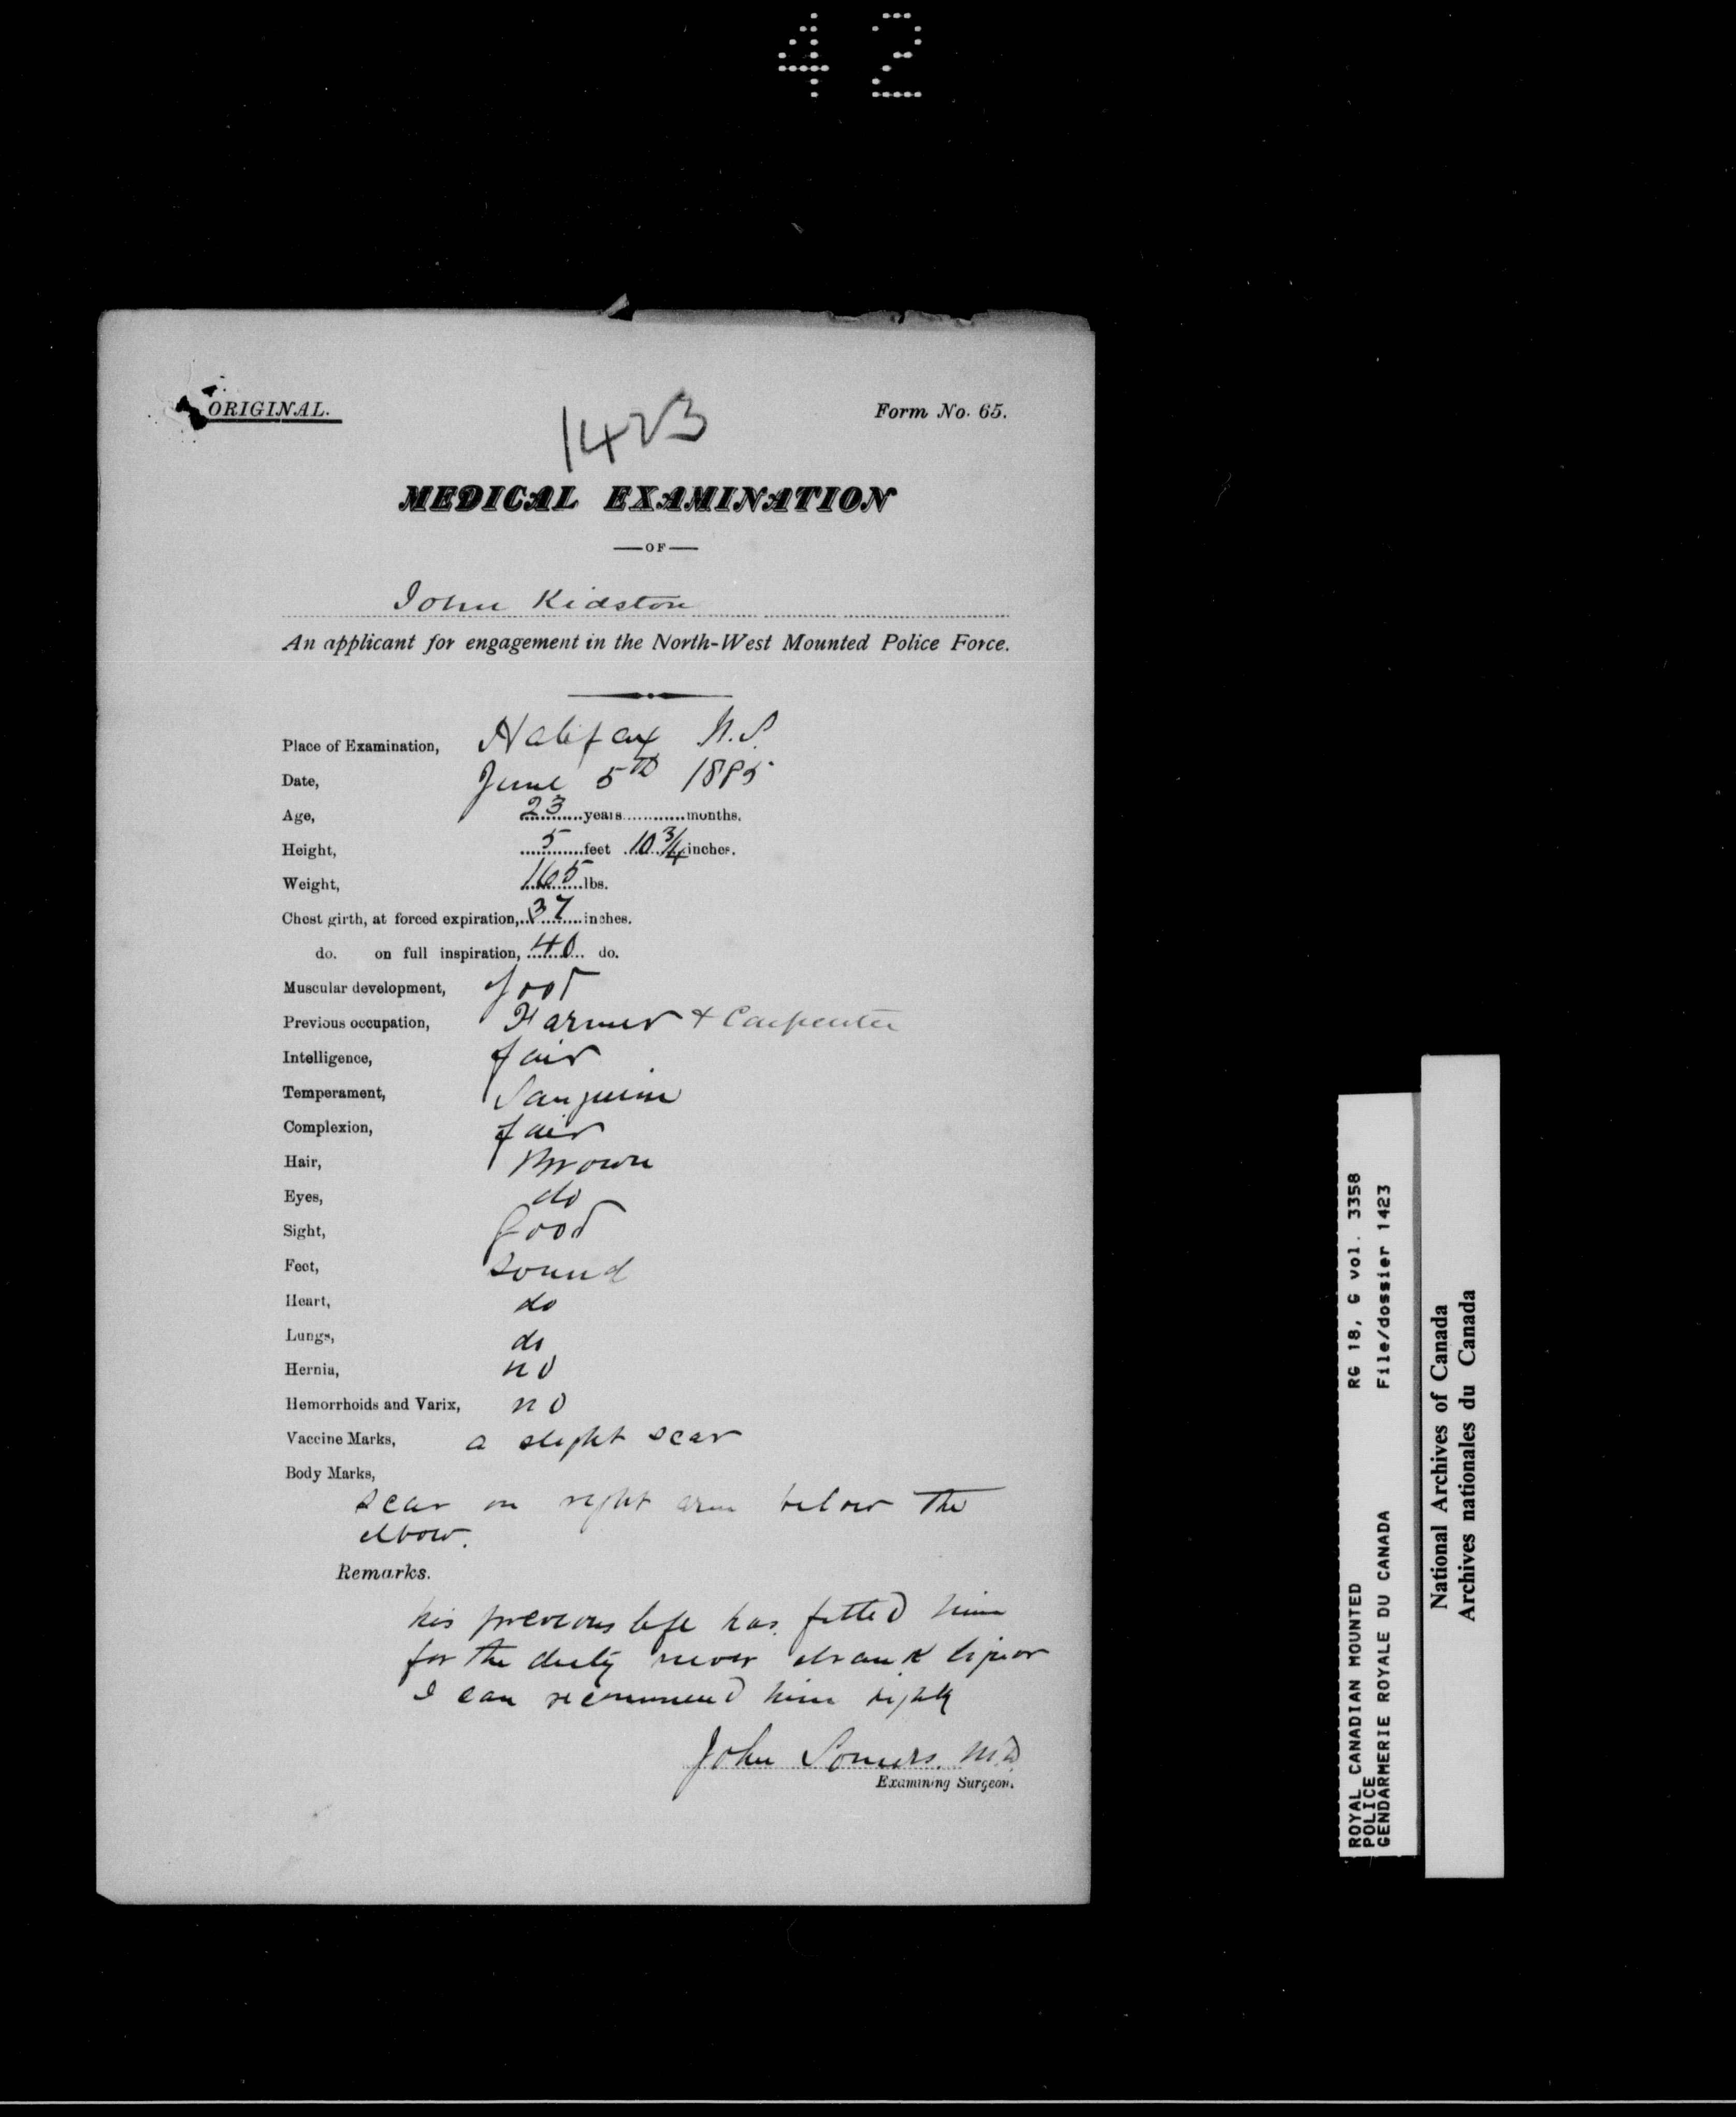 42
ORIGINAL.
Form No. 65.
1423
MEDICAL EXAMINATION
—OF—
John Kidston
An applicant for engagement in the North-West Mounted Police Force.
Place of Examination, Halifax N.S.
Date, June 5th 1885
Age, 23 years months.
Height, 5 feet 10 3/4 inches.
Weight, 165 lbs.
Chest girth, at forced expiration, 37 inches.
do. on full inspiration, 40 do.
Muscular development, good
Previous occupation, Farmer & Carpenter
Intelligence, fair
Temperament, Sanguine
Complexion, fair
Hair, Brown
Eyes, do
Sight, Good
Feet, Sound
Heart, do
Lungs, do
Hernia, no
Hemorrhoids and Varix, no
Vaccine Marks, a slight scar
Body Marks,
scar on right arm below the
elbow.
Remarks.
his previous life has fitted him
for the duty never drank liquor
I can recommend him highly
John Somers. M.D.
Examining Surgeon.
ROYAL CANADIAN MOUNTED RG 18, G vol. 3358
POLICE
GENDARMERIE ROYALE DU CANADA File/dossier 1423
National Archives of Canada
Archives nationales du Canada